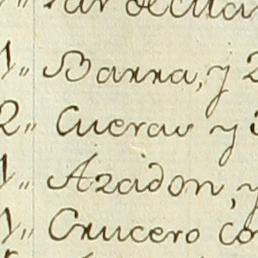 1,, Barra, y 2
2,, Cueras y
1,, Azadon, y
1,, Crucero co